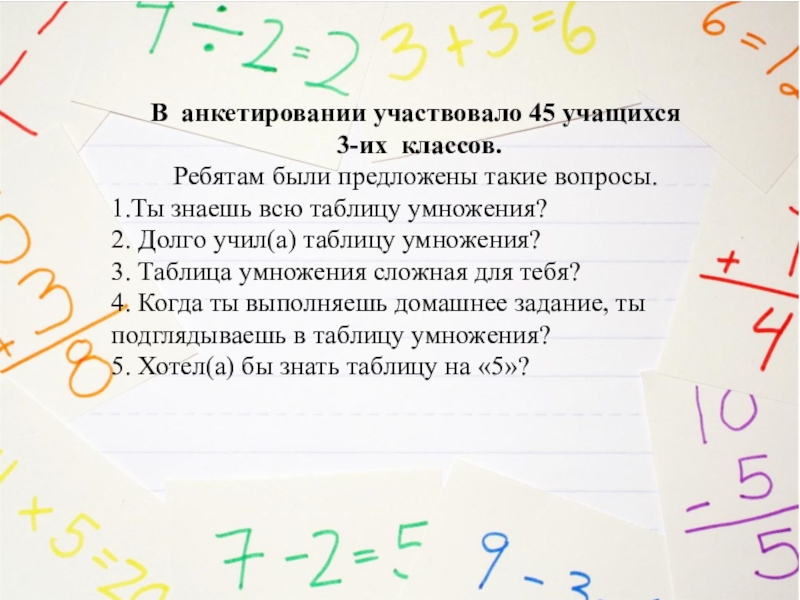 4 ÷ 2 = 2
3 + 3 = 6
6 = 12
В анкетировании участвовало 45 учащихся
3-их классов.
Ребятам были предложены такие вопросы.
1.Ты знаешь всю таблицу умножения?
2. Долго учил(а) таблицу умножения?
3. Таблица умножения сложная для тебя?
4. Когда ты выполняешь домашнее задание, ты
подглядываешь в таблицу умножения?
5. Хотел(а) бы знать таблицу на «5»?
3
+
8
+
4
10
- 5
5
+ 5 = 20
7 - 2 = 5
9 - 3